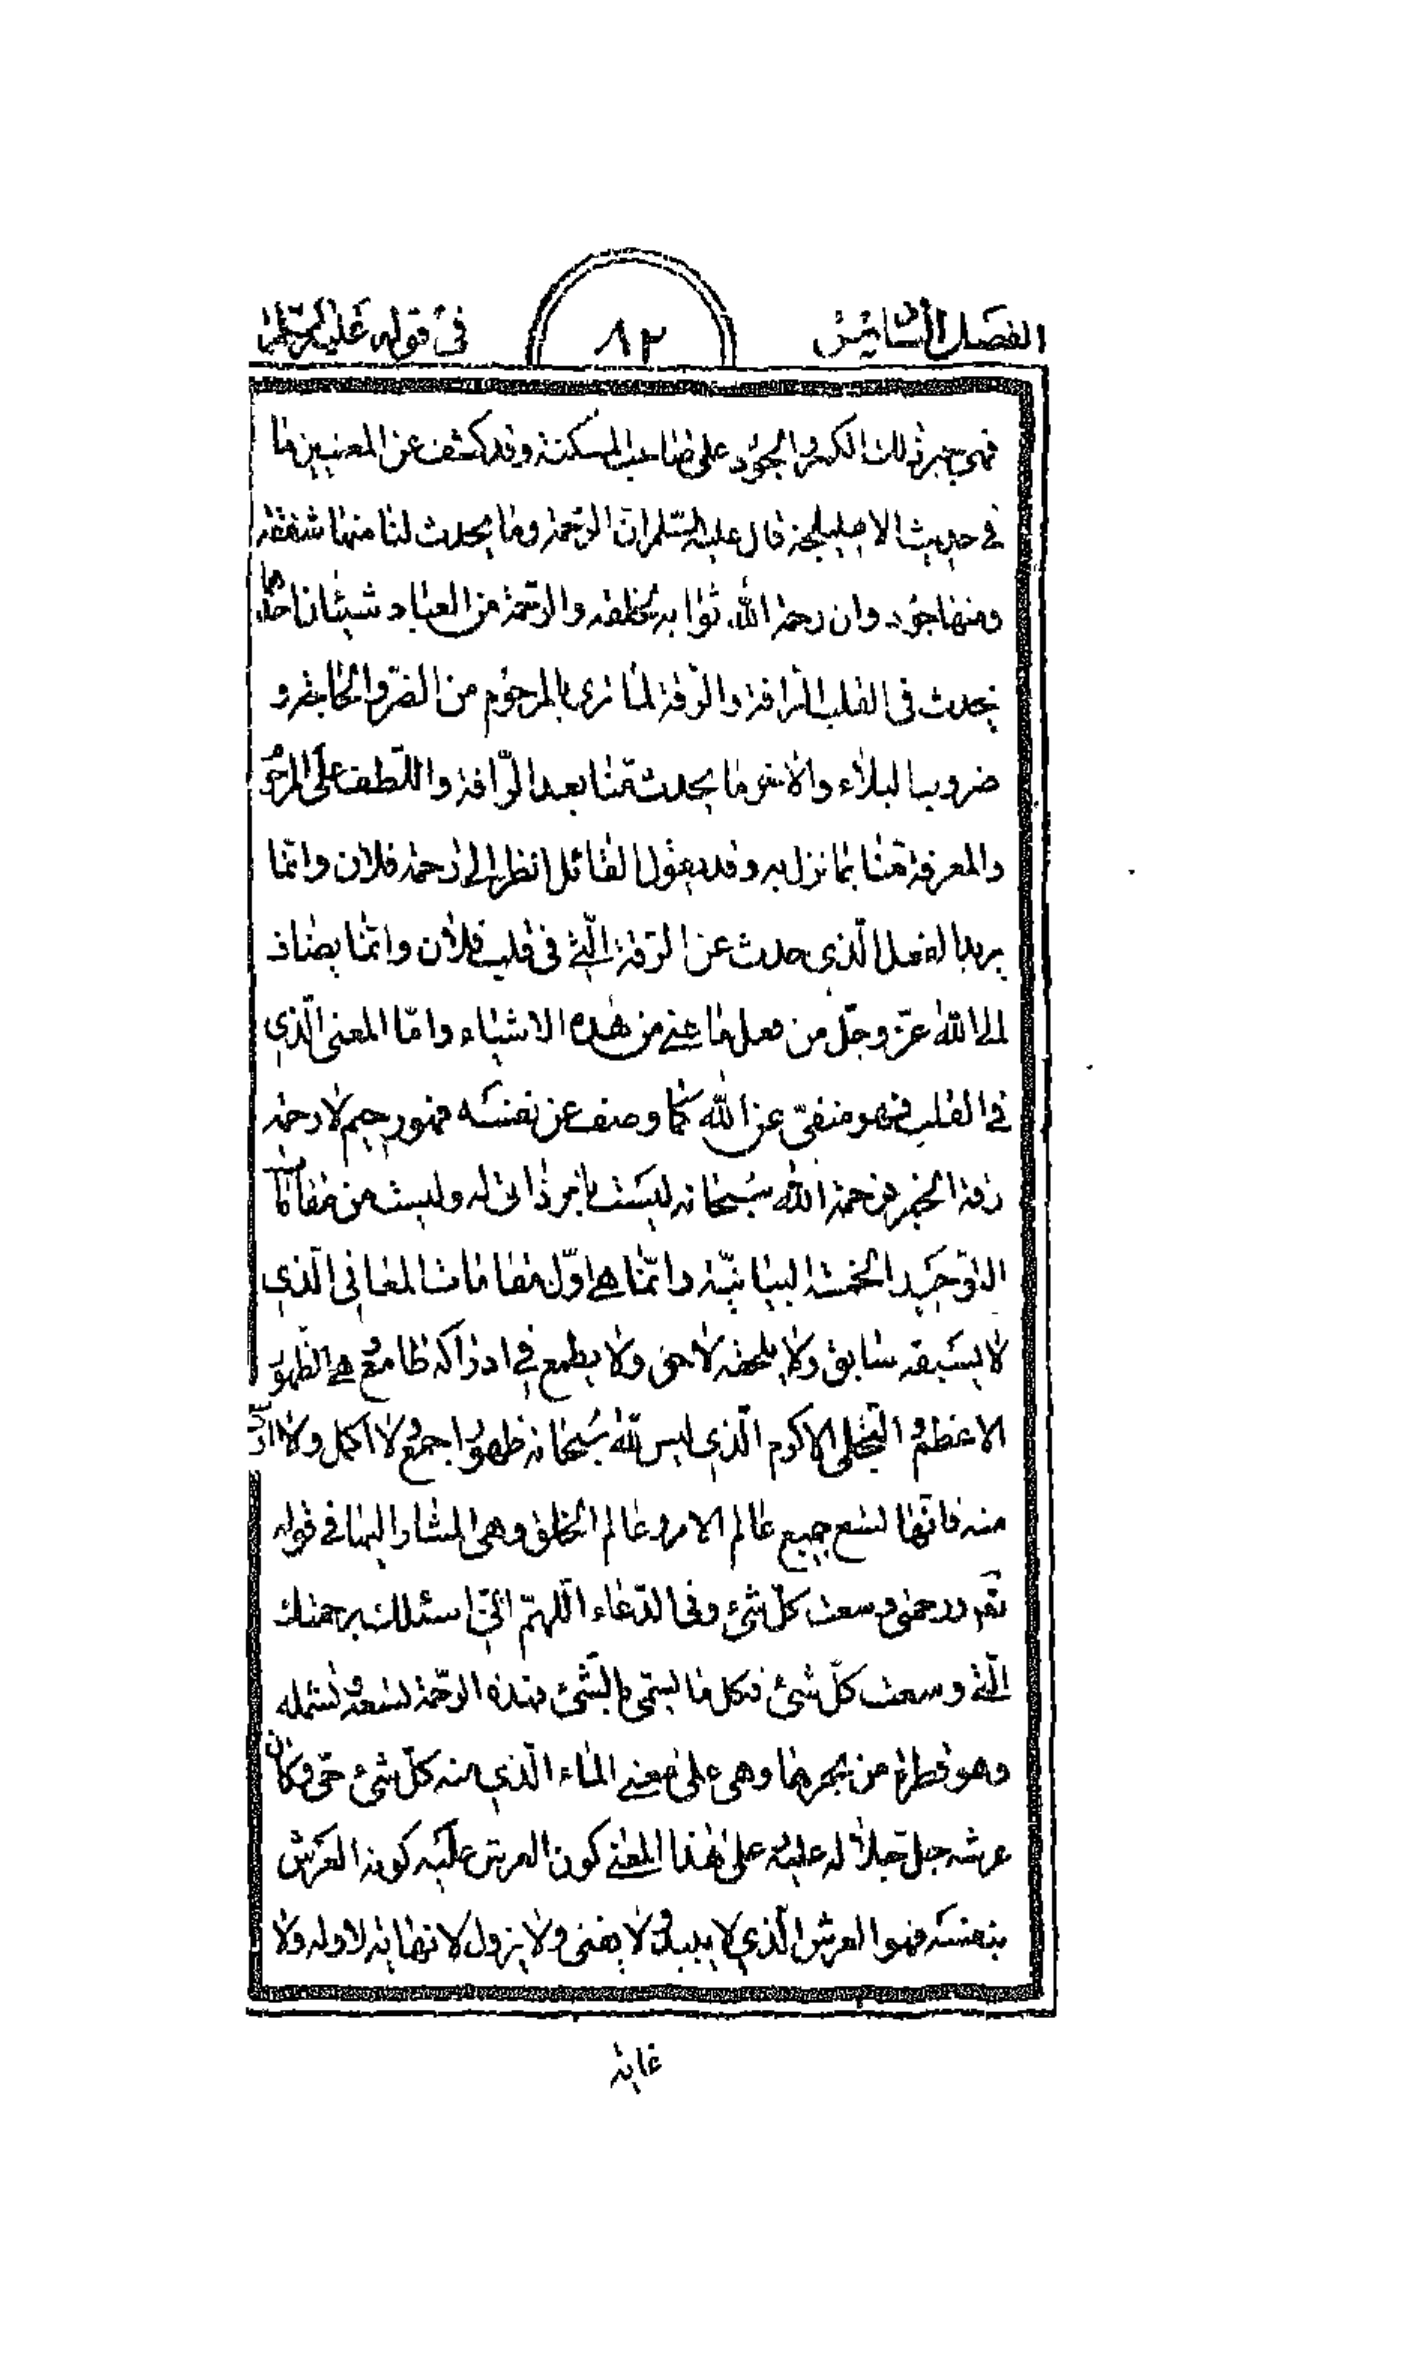 الفصل السادس
٨٢
في قوله عليه
فهى جبر ذلك الكسر والجود على صاحب المسكنة وقد كشف عن المعنيين ما
في حديث الاهليلجة قال عليه السلم ان الرحمة وما يحدث لنا منها شفقة
ومنها جود وان رحمة الله ثوابه لخلقه والرحمة من العباد شيئان احدهما
يحدث في القلب الرافة والرقة لما نرى بالمرحوم من الضر والحاجة و
ضروب البلاء والاخر ما يحدث منا بعد الرافة واللطف على المرحو
والمعرفة منا بما نزل به وقد يقول القائل انظر الى رحمة فلان وانما
يريد الفعل الذي حدث عن الرقة التي في قلب فلان وانما يضاف
الى الله عز وجل من فعل ما عنى من هذه الاشياء واما المعنى الذي
في القلب فهو منفي عن الله كما وصف عن نفسه فهو رحيم لا رحمة
رقة الخبر فرحمة الله سبحانه ليست بامر ذاتى له وليست من مقامات
التوحيد الخمسة البيانية وانما هي اول مقامات المعاني الذي
لا يسبقه سابق ولا يلحقه لاحق ولا يطمع في ادراكه طامع هي الظهور
الاعظم والتجلى الاكرم الذي ليس لله سبحانه ظهور اجمع لا اكمل ولا
منه فانها تسع جميع عالم الامر وعالم الخلق وهى المشار اليها في قوله
تعم ورحمتى وسعت كل شئ وفى الدعاء اللهم اني اسئلك برحمتك
التي وسعت كل شئ فكل ما يسمى بالشئ فهذه الرحمة تسعه وتشمله
وهو قطرة من بحرها وهى على معنى الماء الذي منه كل شئ حى وكان
عرشه جل جلاله عليه على هذا المعنى كون العرش عليه كونه العرش
بنفسه فهو العرش الذي لا يبيد ولا يفنى ولا يزول لا نهاية لاوله ولا
غاية